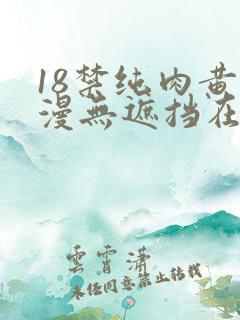 18禁纯肉黄
漫無遮挡在
雲霄瀟
未经同意禁止转载